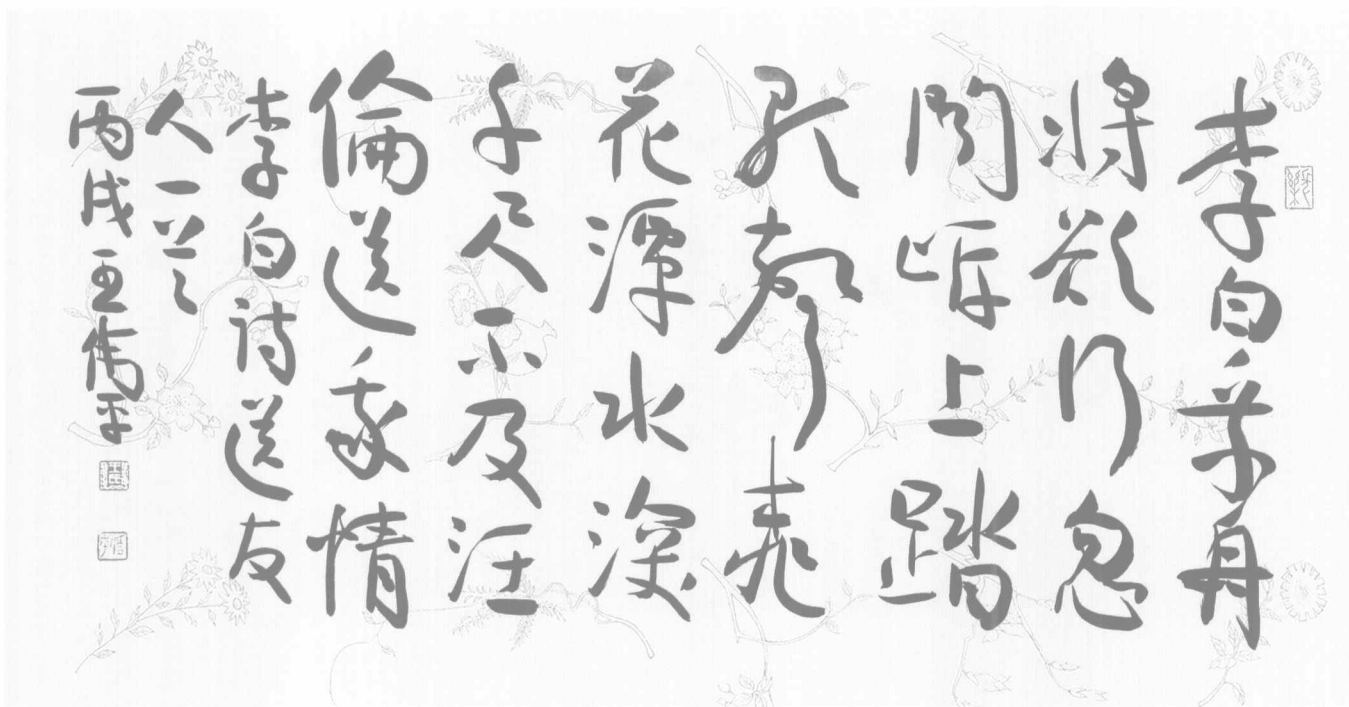 李白乘舟
將欲行忽
聞岸上踏
歌聲桃
花潭水深
千尺不及汪
倫送我情
李白詩送友
人一首
丙戌王平